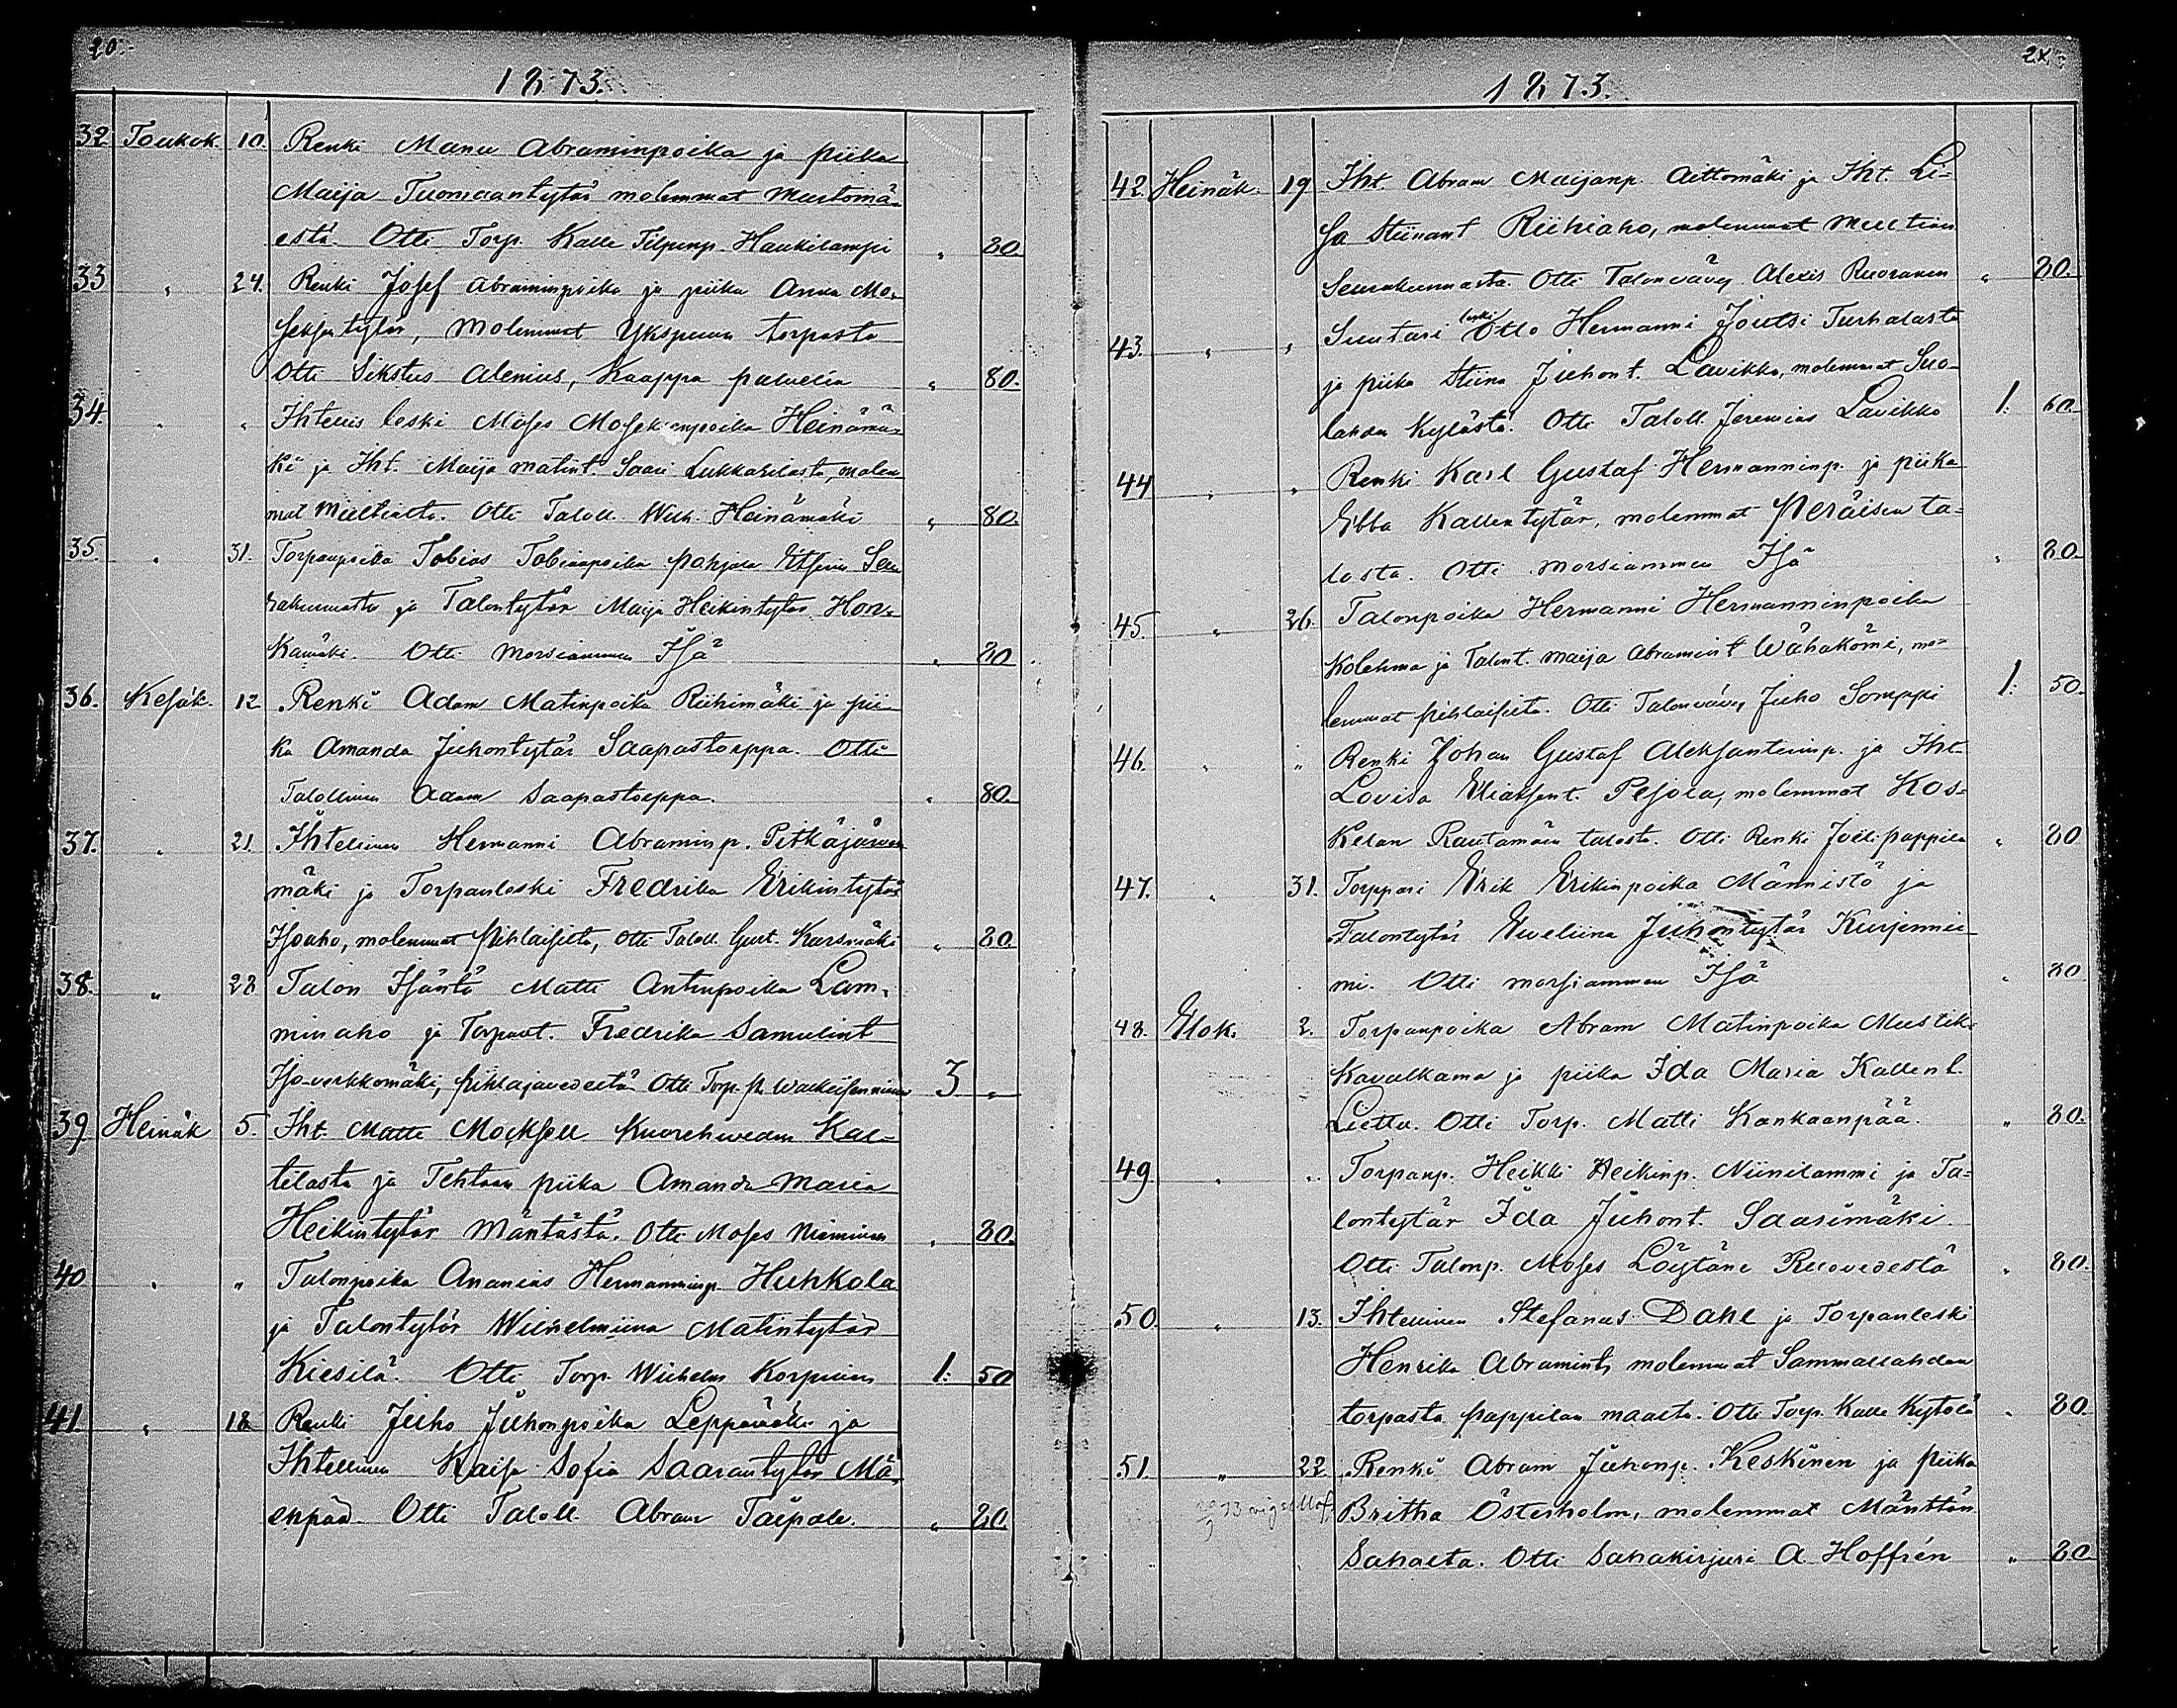 20.
1873.
32 Toukok. 10. Renki Manu Abraminpoika ja piika
Maija Tuomaantytär molemmat Mustomä-
estä. Otti Torp. Kalle Filpinp. Haukilampi „ 80.
33 „ 24. Renki Josef Abraminpoika ja piika Anna Mo-
seksentytär, Molemmat Ykspuun torpasta
Otti Sikstus Alenius, Kaappa palvelia „ 80.
34. „ „ Ihtellis leski Moses Moseksenpoika Heinämä-
ki ja Iht. Maija Matint. Saari Lukkarilasta, molem
mat Multialta. Otti Taloll. Wilh. Heinämäki „ 80.
35. „ 31. Torpanpoika Tobias Tobiaanpoika Pohjala Etserin Seu
rakunnasta ja Talontytär Maija Heikintytär Hon-
kamäki. Otti Morsiammen Isä „ 80
36. Kesäk. 12 Renki Adam Matinpoika Riihimäki ja pii-
ka Amanda Juhontytär Saapastorppa. Otti
Talollinen Adam Saapastorppa. „ 80.
37. „ 21. Ihtellinen Hermanni Abraminp. Pitkäjärven
mäki ja Torpanleski Fredrika Erikintytär
Isoaho, molemmat Pihlaisilta, Otti Taloll. Gust. Karsimäki „ 80.
38. „ 28 Talon Isäntä Matti Antinpoika Lam-
minaho ja Torpant. Fredrika Samulint
Iso-verkkomäki, Pihlajavedeltä Otti Torp. P. Walkeisenniemi 3 „
39 Heinäk 5. Iht. Matti Mocksell Kuorehveden Kal-
tilasta ja Tehtaan piika Amanda Maria
Heikintytär Mäntästä. Otti Moses Nieminen „ 80.
40 „ „ Talonpoika Ananias Hermanninp. Huhkola
ja Talontytär Wilhelmiina Matintytär
Kiesilä. Otti Torp. Wilhelm Korpinen 1: 50
41. „ 18. Renki Juho Juhonpoika Leppämäki ja
Ihtellinen Kaisa Sofia Saarantytär Mä-
enpää. Otti Taloll. Abram Taipale. „ 80.
1873.
42. Heinäk. 19 Iht. Abram Maijanp. Aittomäki ja Iht. Li-
sa Stiinant Riihiaho, molemmat Multian
Seurakunnasta. Otti Talonvävy Alexis Ruoranen „ 80.
43. „ „ Suutari leski Otto Hermanni Joutsi Turhalasta
ja piika Stiina Juhont. Lavikko, molemmat Suo-
lahden Kylästä. Otti Taloll. Jeremias Lavikko 1. 60.
44 „ „ Renki Karl Gustaf Hermanninp. ja piika
Ebba Kallentytär, molemmat Peräisen ta-
losta. Otti Morsiammen Isä „ 80.
45. „ 26. Talonpoika Hermanni Hermanninpoika
Kolehma ja Talont. Maija Abramint Wähäkömi, mo-
lemmat Pihlaisilta. Otti Talonvävy Juho Somppi 1. 50.
46. „ „ Renki Johan Gustaf Aleksanterinp. ja Iht
Lovisa Eliaksent. Pesola, molemmat Kos-
kelan Rautamäen talosta. Otti Renki Joeli Pappila „ 80
47. „ 31. Torppari Erik Erikinpoika Männistö ja
Talontytär Eveliina Juhontytär Kurjennie-
mi. Otti morsiammen Isä „ 80
48. Elok. 2. Torpanpoika Abram Matinpoika Mustik-
kavalkama ja piika Ida Maria Kallent.
Lietta. Otti Torp. Matti Kankaanpää. „ 80.
49 „ „ Torpanp. Heikki Heikinp. Niinilammi ja Ta-
lontytär Ida Juhont. Saarimäki.
Otti Talonp. Moses Löytäne Ruovedestä „ 80.
50. „ 13. Ihtellinen Stefanus Dahl ja Torpanleski
Henrika Abramint, molemmat Sammallahden
torpasta Pappilan maalta. Otti Torp. Kalle Kytölä „ 80.
51. „ 22. Renki Abram Juhonp. Keskinen ja Piika
Britha Österholm, molemmat Mänttän
Sahalta. Otti Sahakirjuri A Hoffrén „ 80